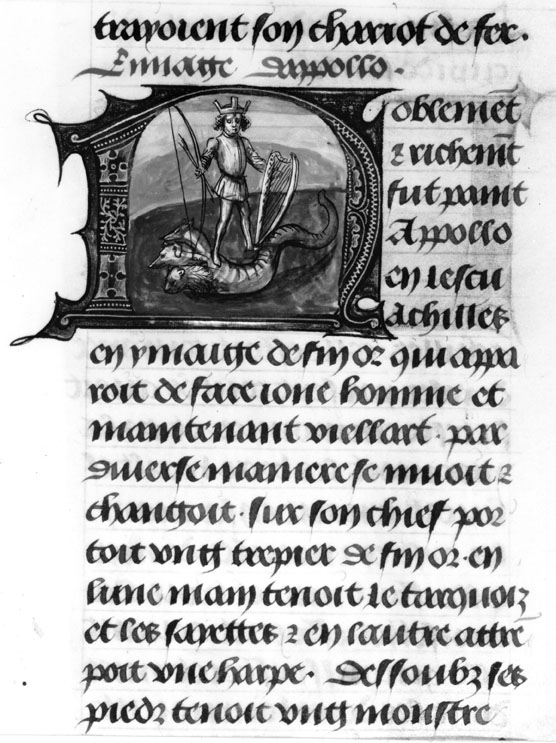 trayoient son chariot de fer.
Ennaige dappollo.
Noblemēt
⁊ richemt̄
fut paint
Appollo
en lescu
achilles
en ymaige de fin or qui appa
roit de face ione homme et
maintenant viellart. par
diuerse maniere se muoit ⁊
changoit. sur son chief por
toit vng trepier de fin or. en
lune main tenoit le tarquoiz
et les sayettes ⁊ en lautre attre
poit vne harpe. Dessoubz ses
piedz tenoit vng monstre